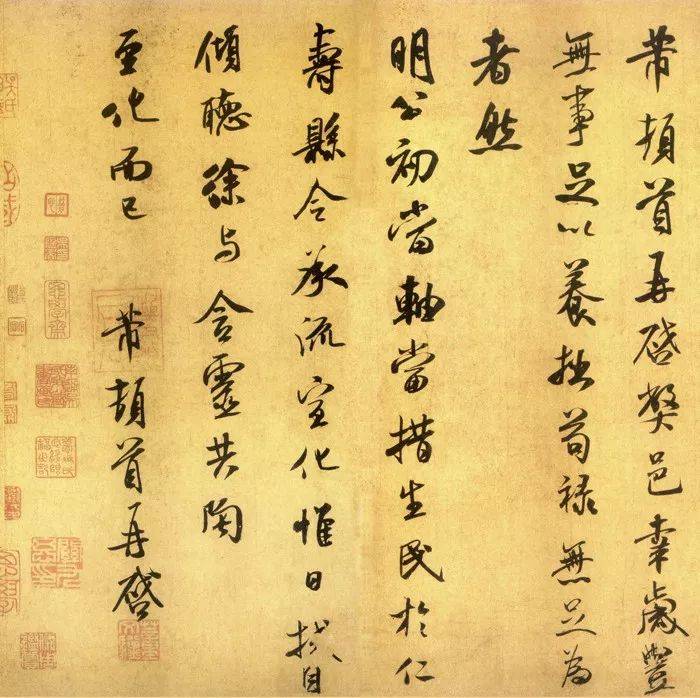 芾頓首再启弊邑幸歲豐
無事足以養拙苟禄無足為
者然
明公初當軸當措生民於仁
壽縣令承流宣化惟日拭目
傾聽徐与含靈共陶
至化而已 芾頓首再启